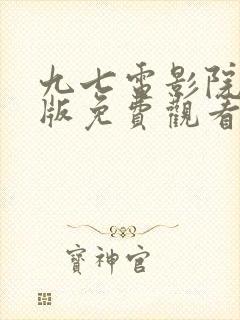 九七電影院
版免費觀看
寶神官